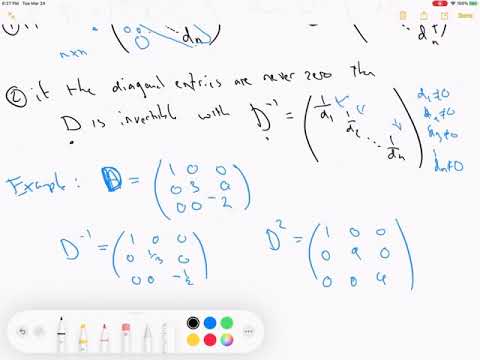 6:27 PM Tue Mar 24
100%
Done
n×n
0
0 dn
d T n
② if the diagonal entries are never zero then
D is invertible with D⁻¹ = ( 1/d1 1/d2 ⋱ 1/dn )
d1≠0
d2≠0
d3≠0
dn≠0
Example: D = ( 1 0 0
0 3 0
0 0 -2 )
D⁻¹ = ( 1 0 0
0 1/3 0
0 0 -1/2 )
D² = ( 1 0 0
0 9 0
0 0 4 )